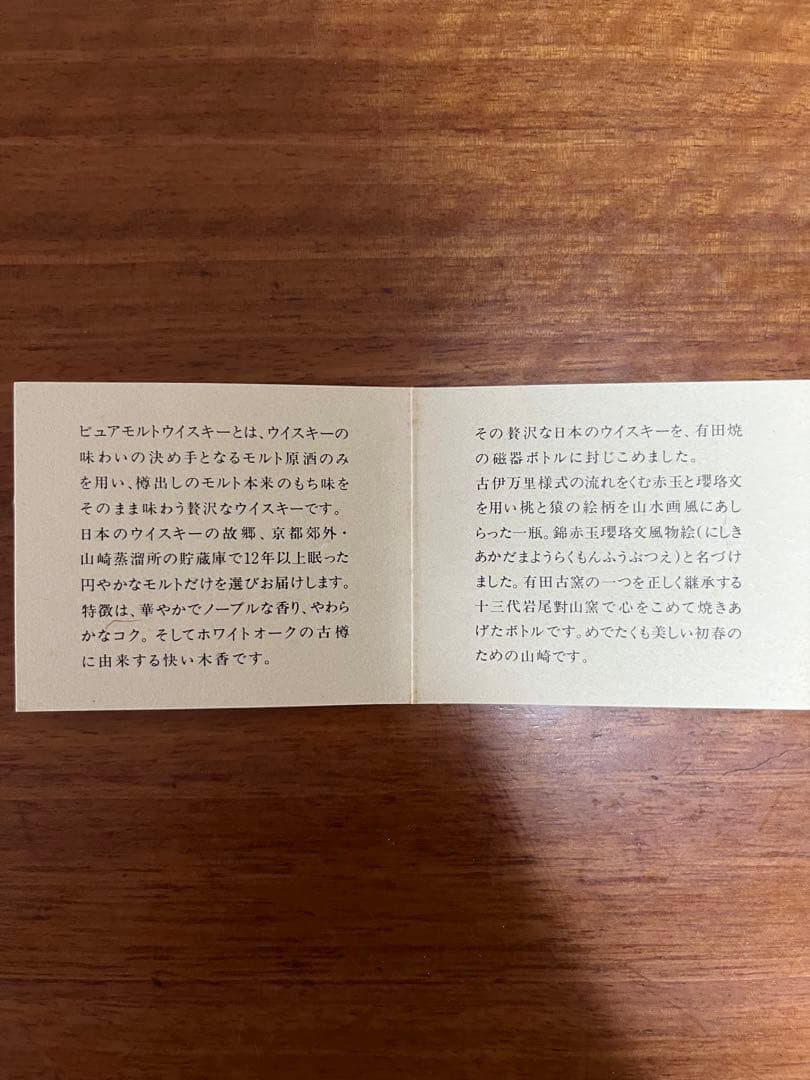 ピュアモルトウイスキーとは、ウイスキーの
味わいの決め手となるモルト原酒のみ
を用い、樽出しのモルト本来のもち味を
そのまま味わう贅沢なウイスキーです。
日本のウイスキーの故郷、京都郊外・
山崎蒸溜所の貯蔵庫で12年以上眠った
円やかなモルトだけを選びお届けします。
特徴は、華やかでノーブルな香り、やわら
かなコク。そしてホワイトオークの古樽
に由来する快い木香です。
その贅沢な日本のウイスキーを、有田焼
の磁器ボトルに封じこめました。
古伊万里様式の流れをくむ赤玉と瓔珞文
を用い桃と猿の絵柄を山水画風にあし
らった一瓶。錦赤玉瓔珞文風物絵(にしき
あかだまようらくもんふうぶつえ)と名づけ
ました。有田古窯の一つを正しく継承する
十三代岩尾對山窯で心をこめて焼きあ
げたボトルです。めでたくも美しい初春の
ための山崎です。